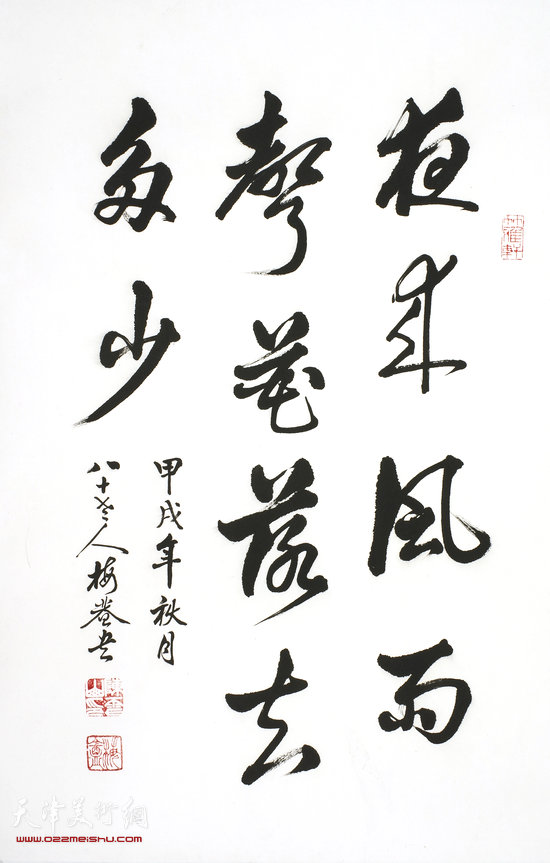 夜來風雨
聲花落知
多少
甲戌年秋月
八十老人梅書
天津美術網
www.022meishu.com